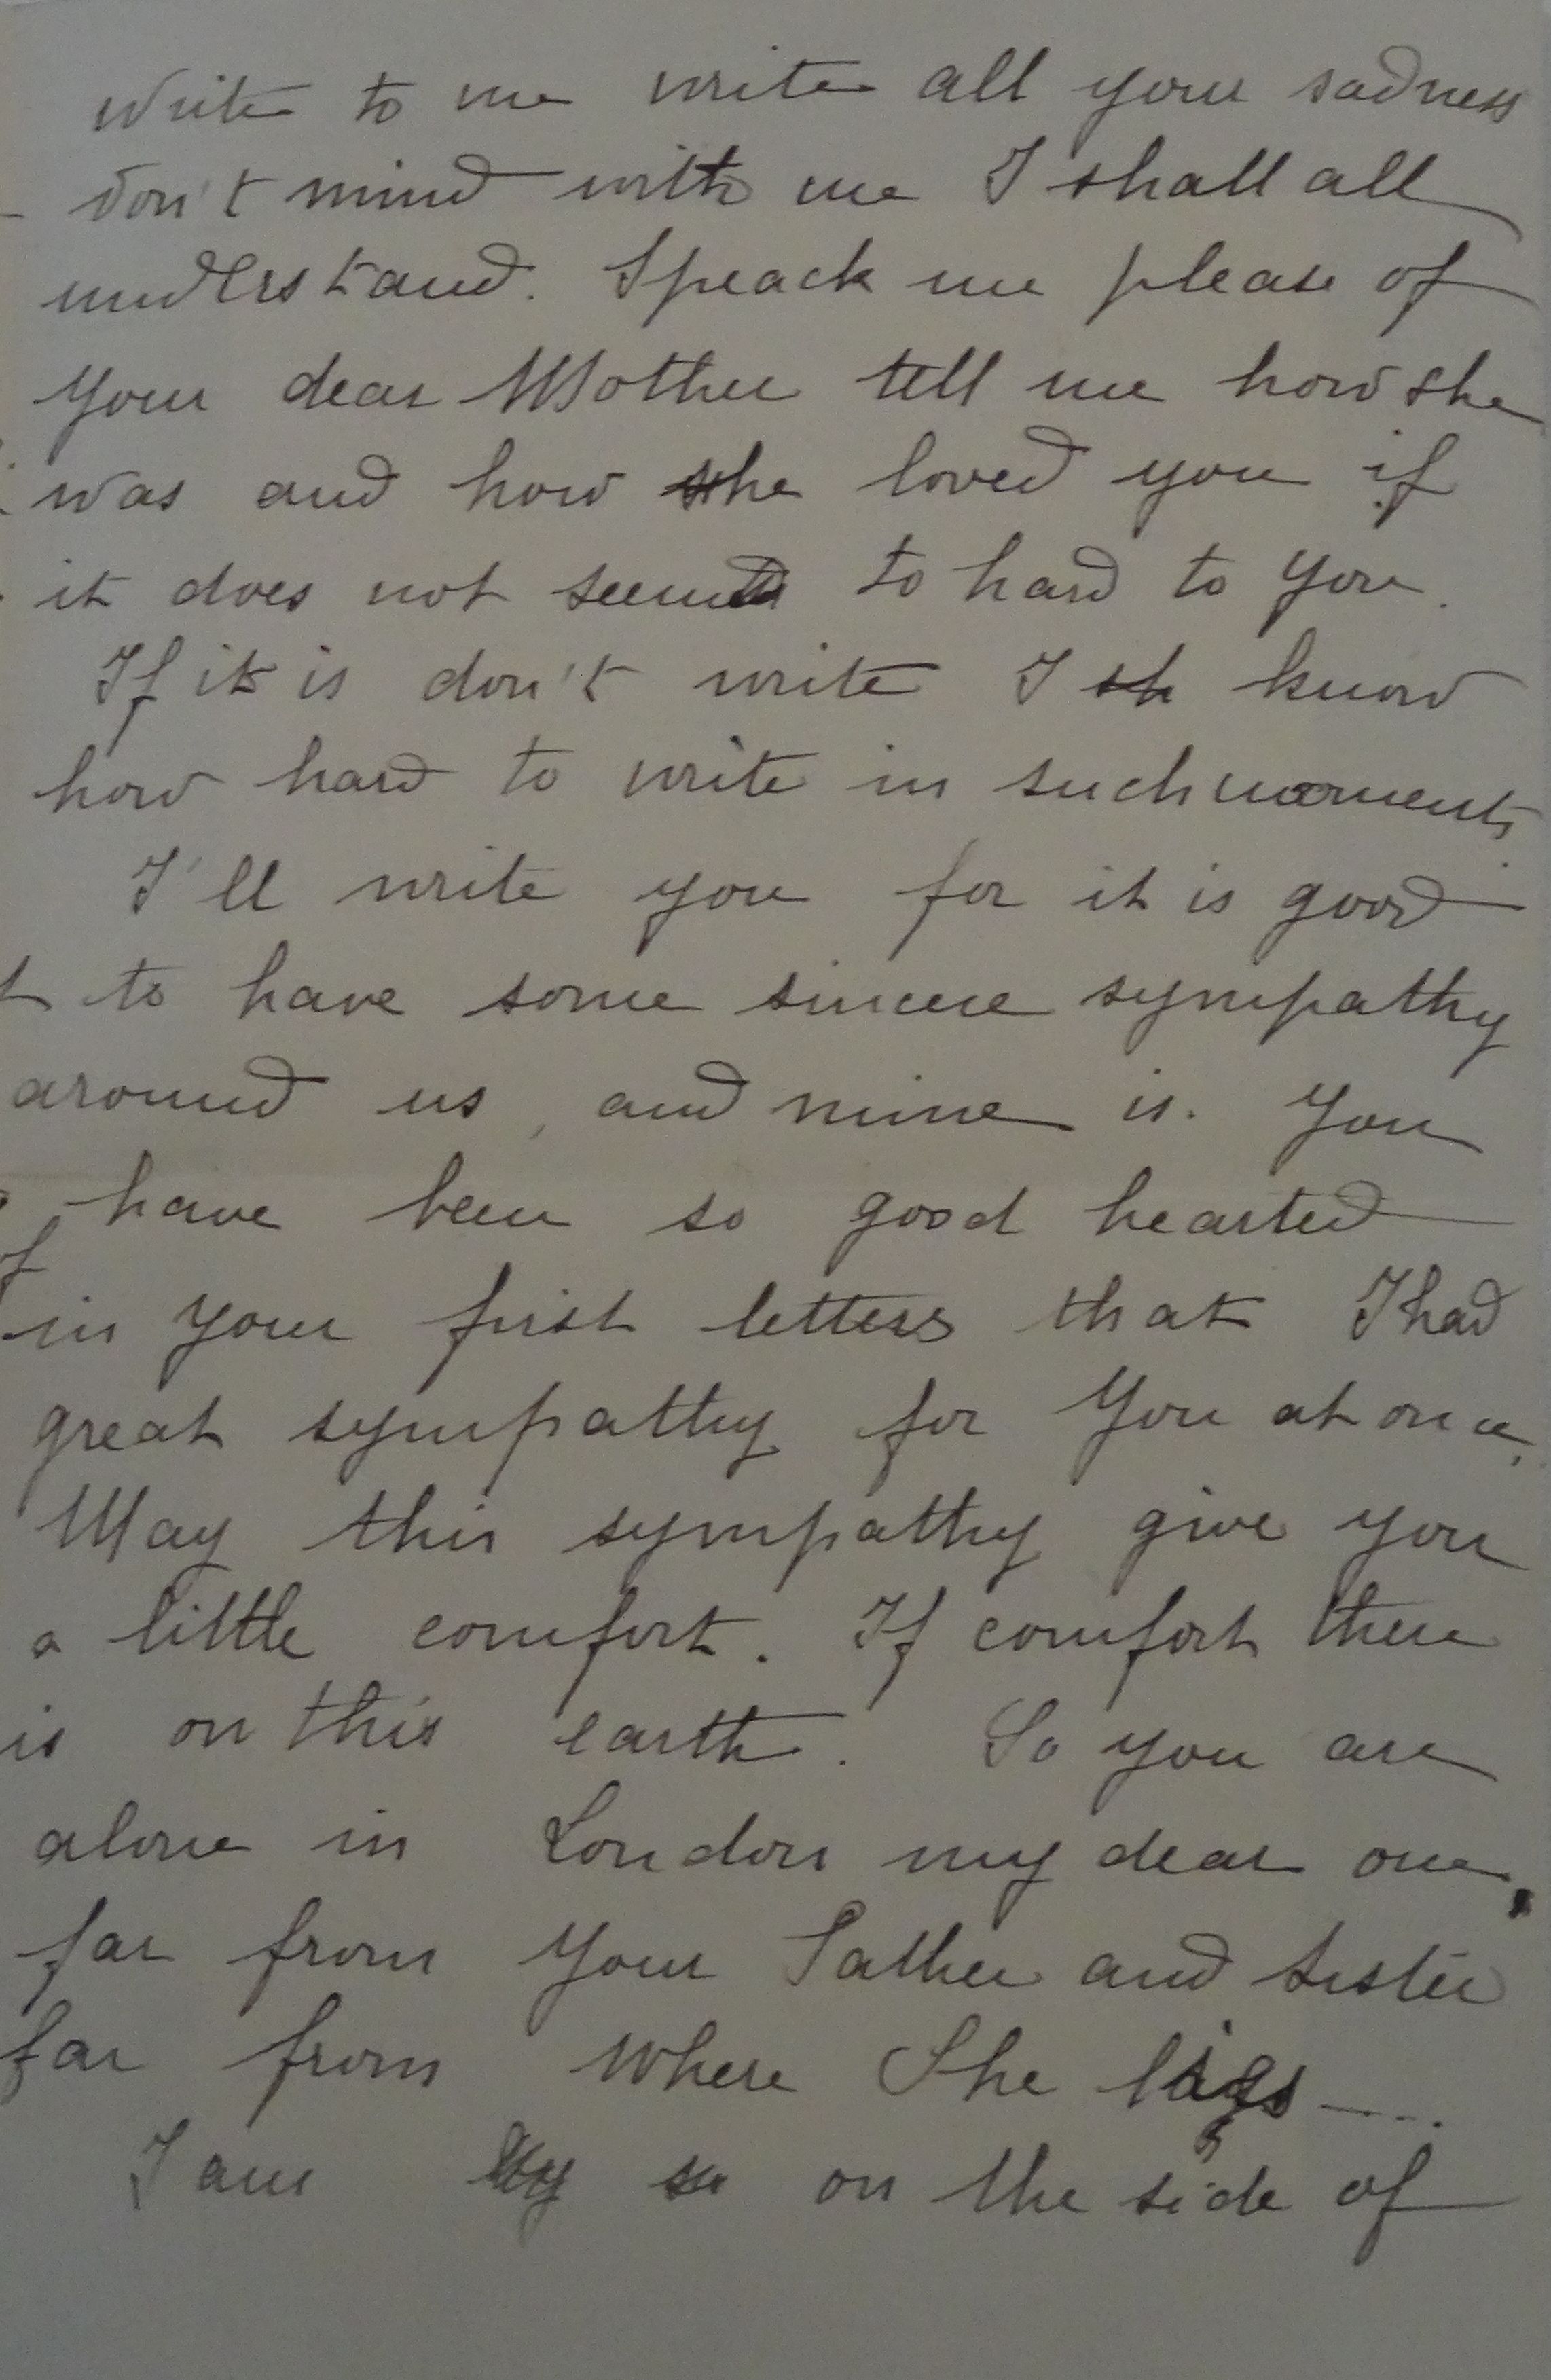 write to me write all your sadness
don't mind with me I shall all
understand. Speack me please of
your dear Mother tell me how she
was and how she loved you if
it does not seem to hard to you.
If it is don't write I sh know
how hard to write in such moments
I'll write you for it is good
to have some sincere sympathy
around us, and mine is. You
have been so good hearted
in your first letters that I had
great sympathy for You at once,
May this sympathy give you
a little comfort. If comfort there
is on this earth. So you are
alone in London my dear one,
far from your Father and Sister
far from where She lies ....
I am so on the side of